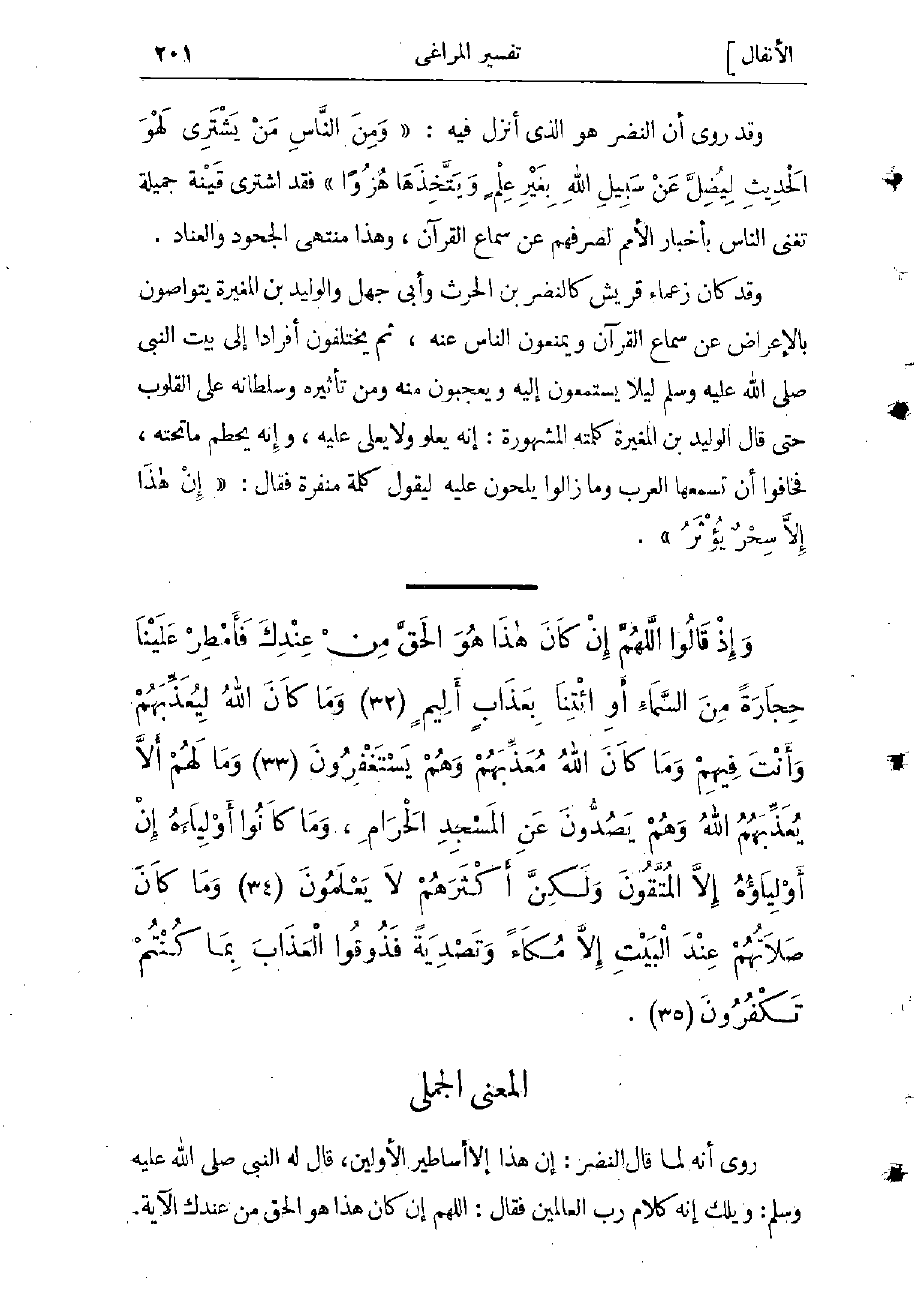 الأنفال ] تفسير المراغى ٢٠١
وقد روى أن النضر هو الذى أنزل فيه : « وَمِنَ النَّاسِ مَنْ يَشْتَرِى لَهْوَ
الْحَدِيثِ لِيُضِلَّ عَنْ سَبِيلِ اللهِ بِغَيْرِ عِلْمٍ وَيَتَّخِذَهَا هُزُوًا » فقد اشترى قَيْنة جميلة
تغنى الناس بأخبار الأمم لصرفهم عن سماع القرآن ، وهذا منتهى الجحود والعناد .
وقد كان زعماء قريش كالنضر بن الحرث وأبى جهل والوليد بن المغيرة يتواصون
بالإعراض عن سماع القرآن ويمنعون الناس عنه ، ثم يختلفون أفرادا إلى بيت النبى
صلى الله عليه وسلم ليلا يستمعون إليه ويعجبون منه ومن تأثيره وسلطانه على القلوب
حتى قال الوليد بن المغيرة كلمته المشهورة : إنه يعلو ولا يعلى عليه ، وإنه يحطم ما تحته ،
فخافوا أن تسمعها العرب وما زالوا يلحون عليه ليقول كلمة منفرة فقال : « إِنْ هٰذَا
إِلاَّ سِحْرٌ يُؤْثَرُ » .
وَإِذْ قَالُوا اللَّهُمَّ إِنْ كَانَ هٰذَا هُوَ الْحَقَّ مِنْ عِنْدِكَ فَأَمْطِرْ عَلَيْنَا
حِجَارَةً مِنَ السَّمَاءِ أَوِ ائْتِنَا بِعَذَابٍ أَلِيمٍ (٣٢) وَمَا كَانَ اللهُ لِيُعَذِّبَهُمْ
وَأَنْتَ فِيهِمْ وَمَا كَانَ اللهُ مُعَذِّبَهُمْ وَهُمْ يَسْتَغْفِرُونَ (٣٣) وَمَا لَهُمْ أَلاَّ
يُعَذِّبَهُمُ اللهُ وَهُمْ يَصُدُّونَ عَنِ الْمَسْجِدِ الْحَرَامِ ، وَمَا كَانُوا أَوْلِيَاءَهُ إِنْ
أَوْلِيَاؤُهُ إِلاَّ الْمُتَّقُونَ وَلَكِنَّ أَكْثَرَهُمْ لاَ يَعْلَمُونَ (٣٤) وَمَا كَانَ
صَلَاتُهُمْ عِنْدَ الْبَيْتِ إِلاَّ مُكَاءً وَتَصْدِيَةً فَذُوقُوا الْعَذَابَ بِمَا كُنْتُمْ
تَكْفُرُونَ (٣٥) .
المعنى الجملى
روى أنه لما قال النضر : إن هذا إلا أساطير الأولين، قال له النبى صلى الله عليه
وسلم: ويلك إنه كلام رب العالمين فقال : اللهم إن كان هذا هو الحق من عندك الآية.